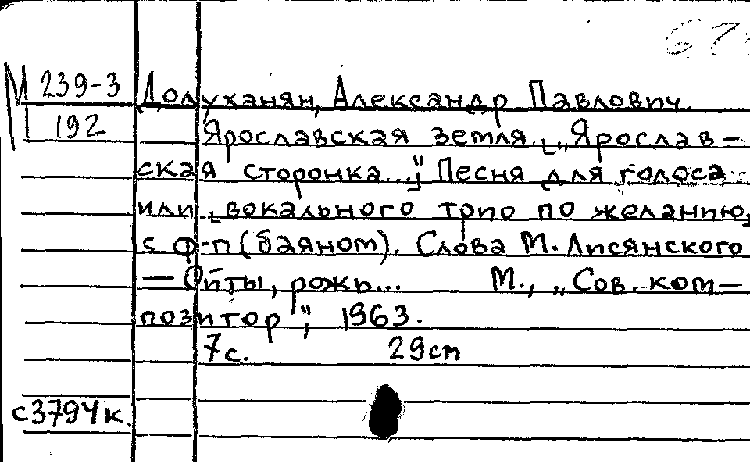 М 239-3 Долуханян, Александр Павлович.
192 Ярославская земля [„Ярослав-
ская сторонка..."] Песня для голоса
или [вокального трио по желанию]
с ф-п (баяном). Слова М. Лисянского
— Ой ты, рожь... М., „Сов. ком-
позитор", 1963.
7с. 29см
с3794к.